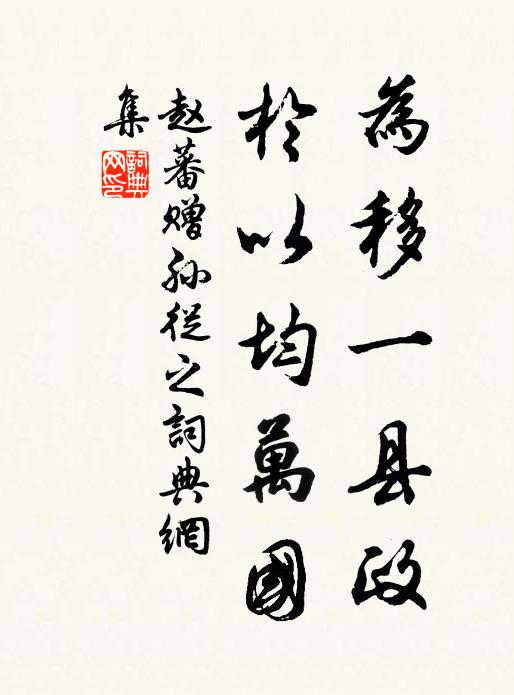 為移一县政
於以均萬國
赵蕃赠孙從之詞典網
集
詞典网印